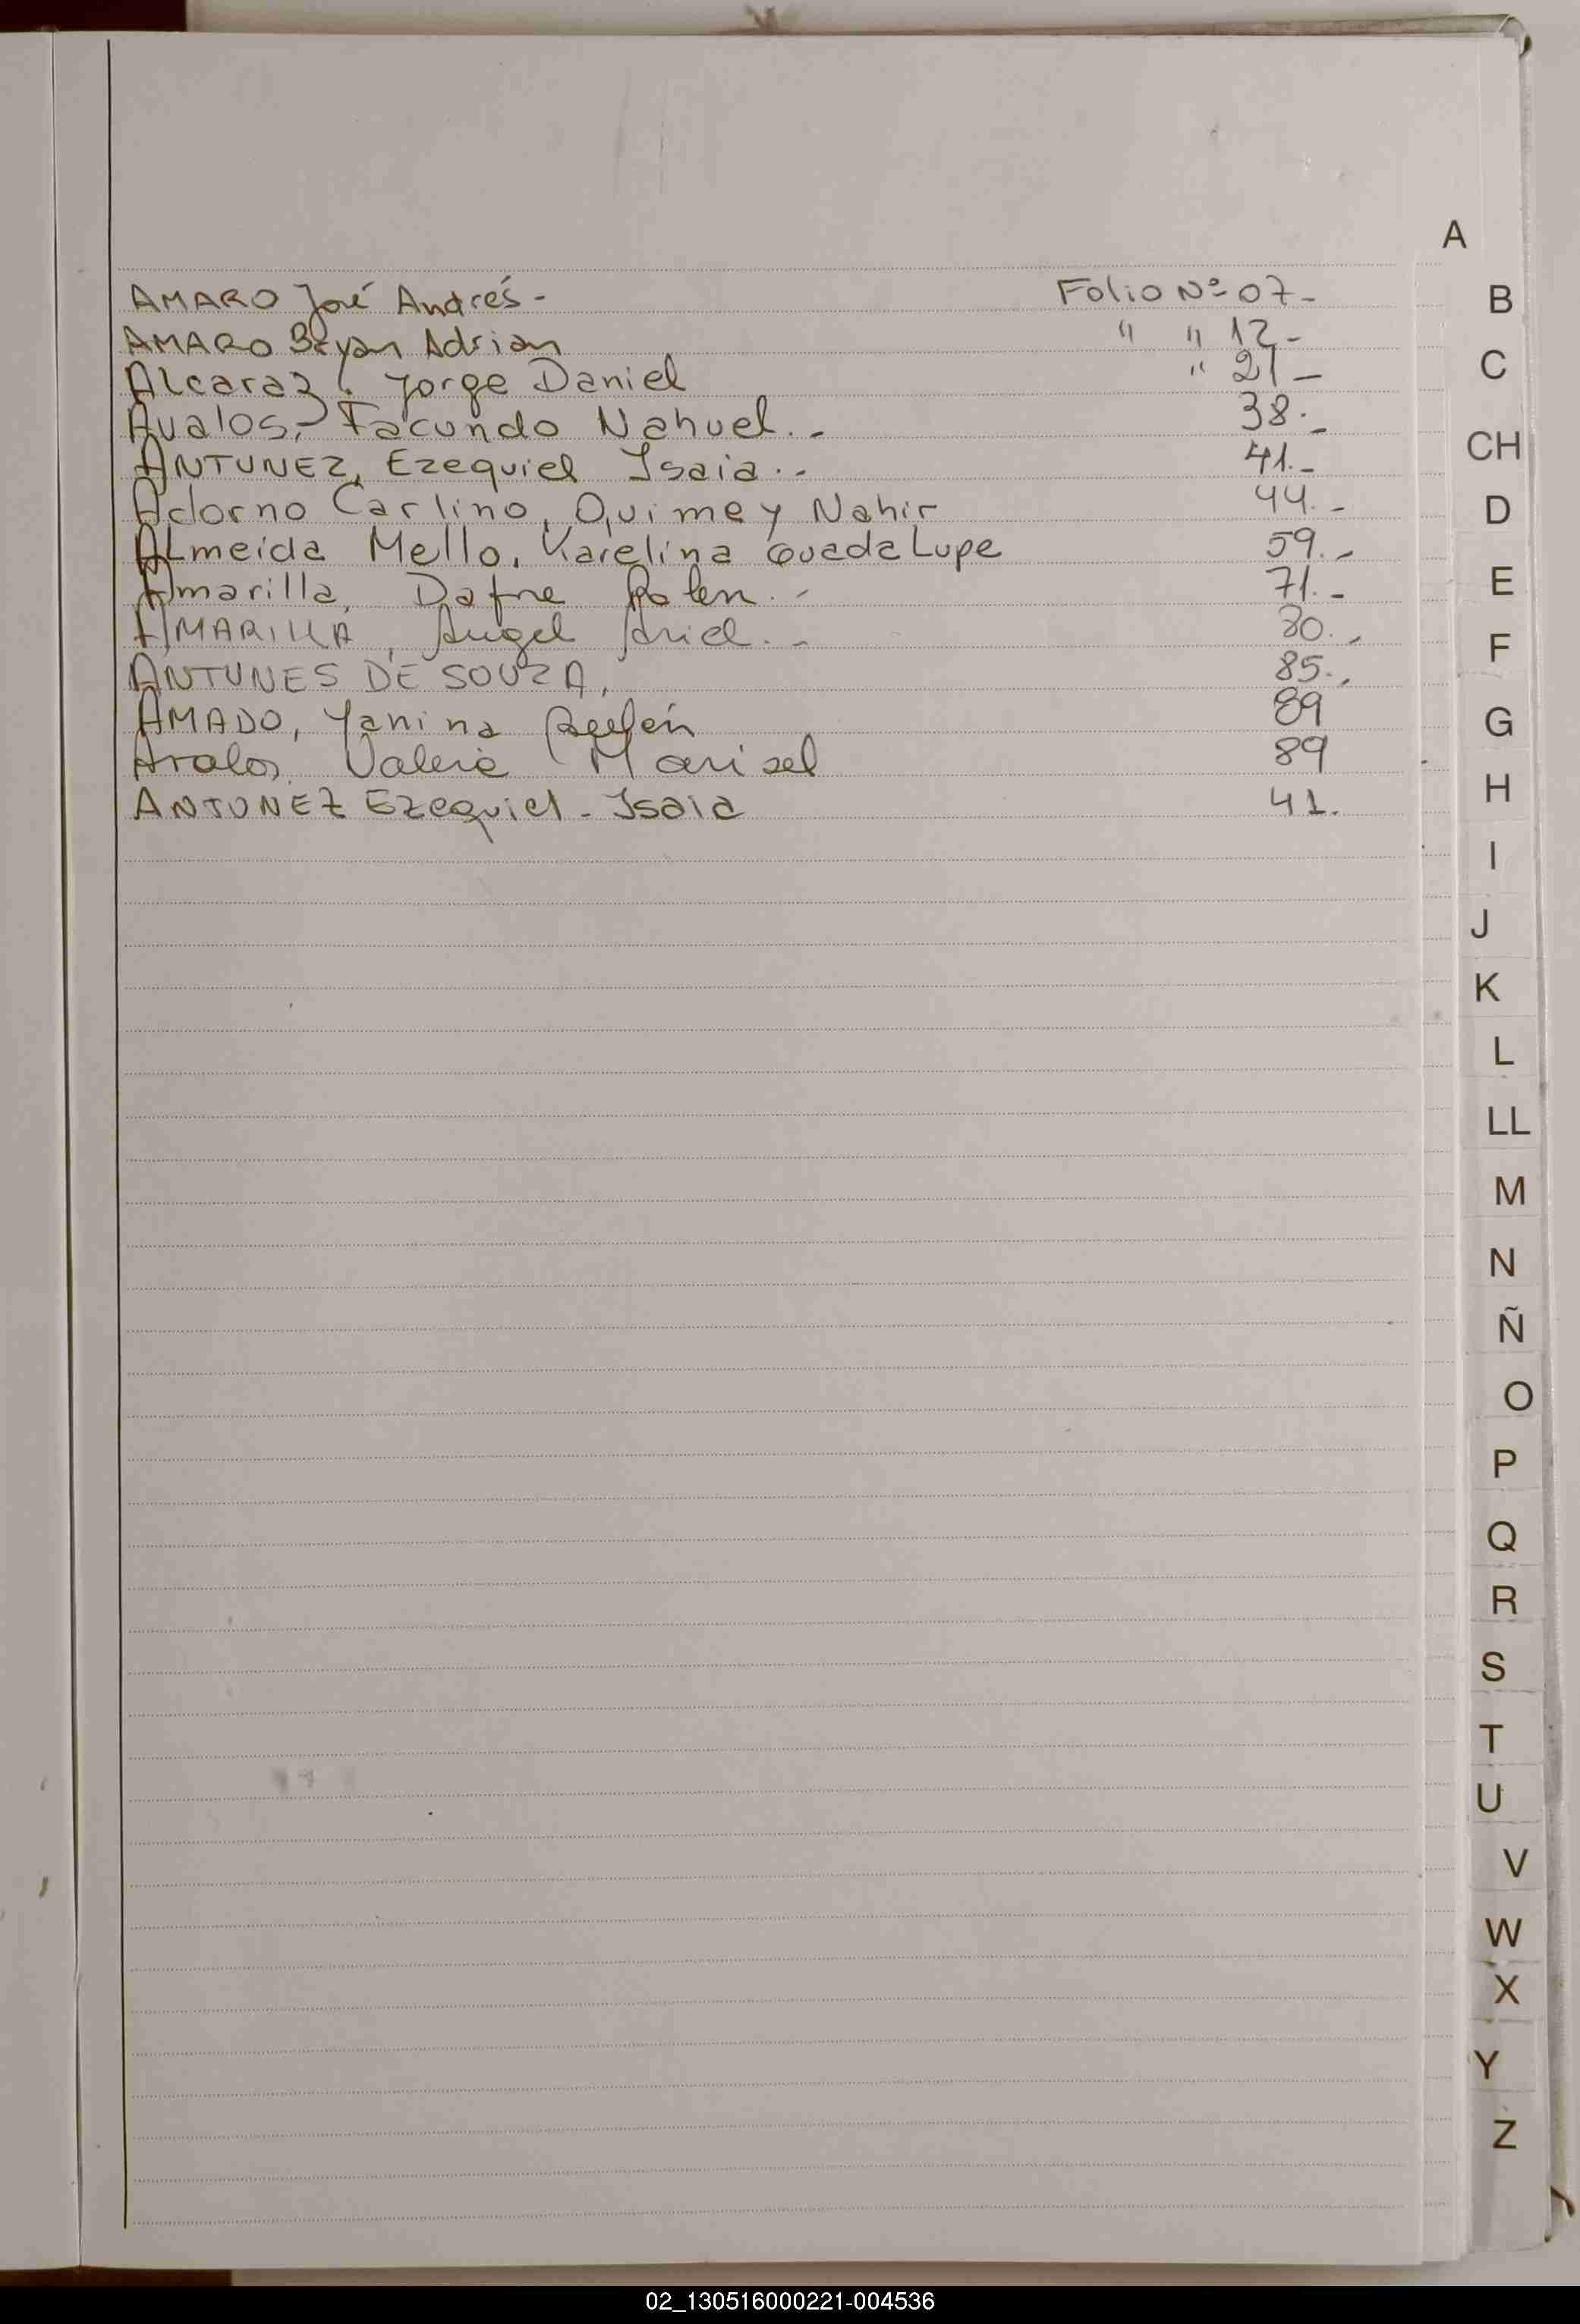 A
AMARO José Andrés - Folio Nº 07 -
AMARO Bryan Adrian " " 12 -
Alcaraz. Jorge Daniel " 21 -
Avalos, Facundo Nahuel. - 38. -
ANTUNEZ, Ezequiel Isaia. - 41. -
Adorno Carlino, Quimey Nahir 44. -
ALmeida Mello, Karelina GuadaLupe 59. -
Amarilla, Dafne 71. -
AMARILLA, Angel Ariel. - 80. -
ANTUNES DE SOUZA, 85. -
AMADO, Yanina Beelén 89
Avalos, Valeria Marisel 89
ANTUNEZ Ezequiel - Isaia 41.
B
C
CH
D
E
F
G
H
I
J
K
L
LL
M
N
Ñ
O
P
Q
R
S
T
U
V
W
X
Y
Z
02_130516000221-004536